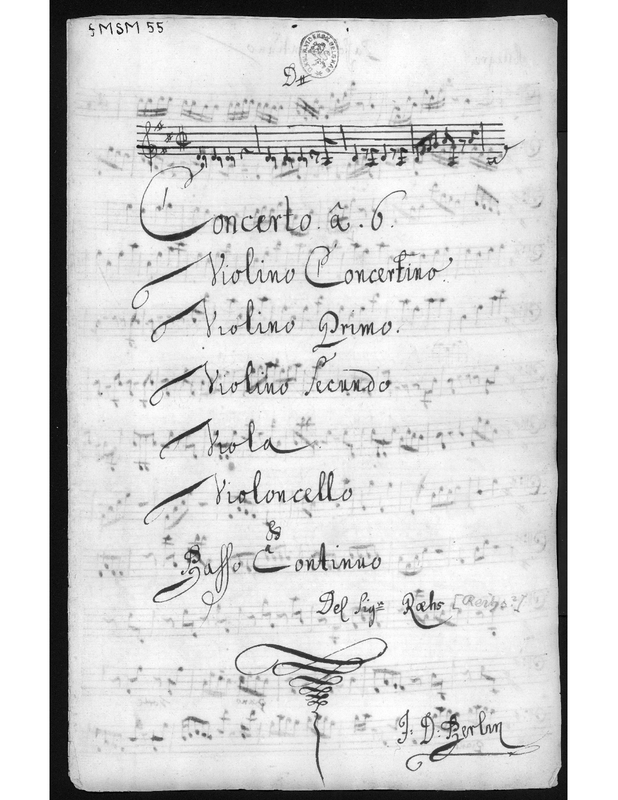 §MSM 55
D#
Concerto. â. 6.
Violino Concertino.
Violino Primo.
Violino Secundo
Viola
Violoncello
&
Basso Continuo
Del Sigr. Ræhs [Reihs?]
J. D: Berlin